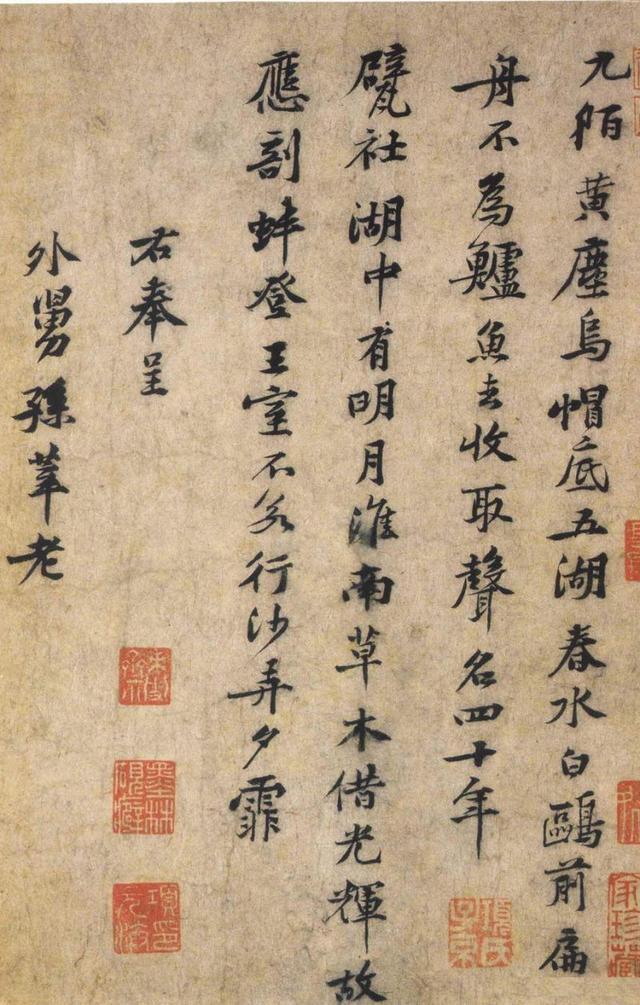 九陌黃塵烏帽底五湖春水白鷗前扁
舟不為鱸魚去收取聲名四十年
甓社湖中有明月淮南草木借光輝故
應剖蚌登王室不若行沙弄夕霏
右奉呈
外舅孫莘老
項氏子京
墨林硯癖